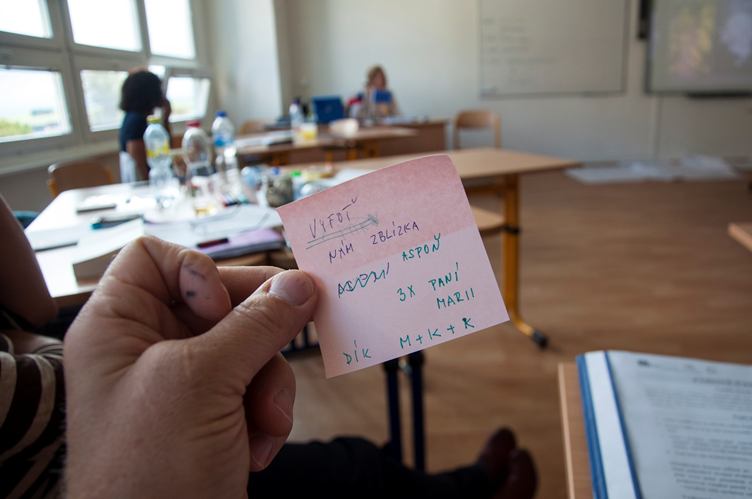 VYFOŤ
NÁM ZBLÍZKA
ASPOŇ
3X PANÍ
MARII
DÍK M+K+K